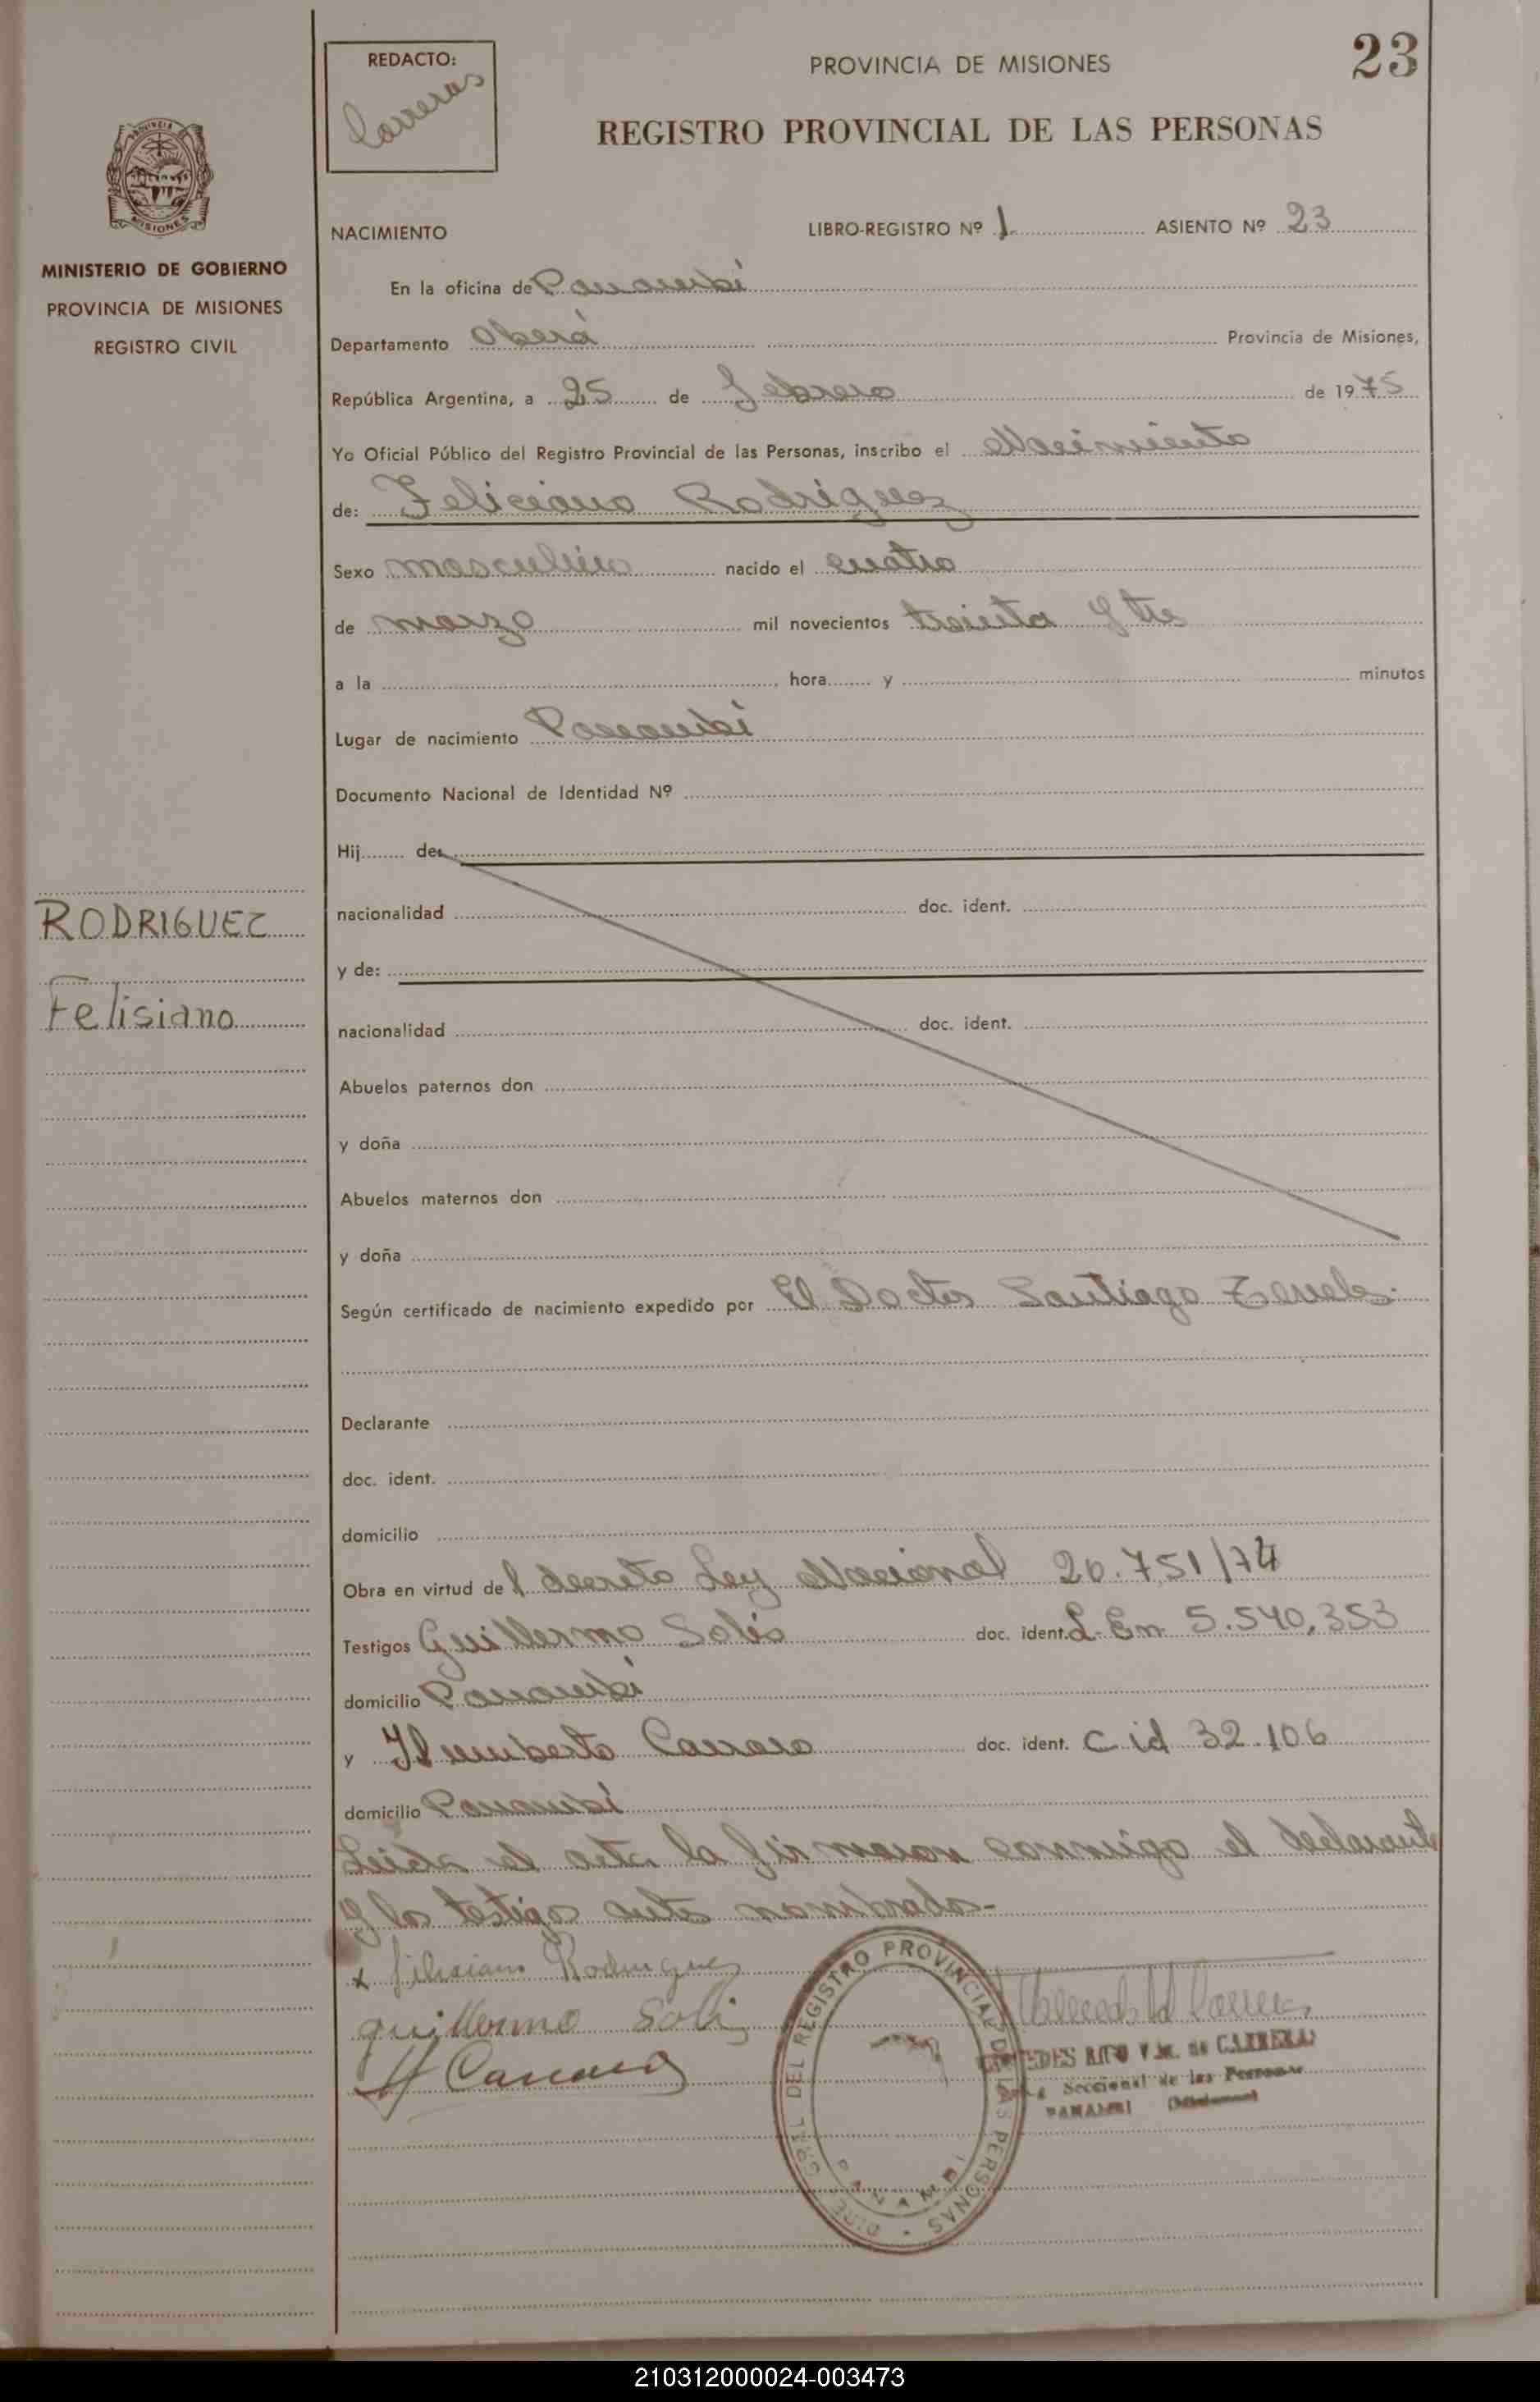 REDACTO:
Carreras
PROVINCIA DE MISIONES
23
REGISTRO PROVINCIAL DE LAS PERSONAS
PROVINCIA DE
MISIONES
MINISTERIO DE GOBIERNO
PROVINCIA DE MISIONES
REGISTRO CIVIL
NACIMIENTO LIBRO-REGISTRO Nº 1 ASIENTO Nº 23
En la oficina de Panambí
Departamento Oberá Provincia de Misiones,
República Argentina, a 25 de Febrero de 1975
Yo Oficial Público del Registro Provincial de las Personas, inscribo el Nacimiento
de: Feliciano Rodriguez
Sexo masculino nacido el cuatro
de marzo mil novecientos treinta y tres
a la hora y minutos
Lugar de nacimiento Panambí
Documento Nacional de Identidad Nº
Hij de:
RODRIGUEZ
nacionalidad doc. ident.
y de:
Felisiano
nacionalidad doc. ident.
Abuelos paternos don
y doña
Abuelos maternos don
y doña
Según certificado de nacimiento expedido por El Doctor Santiago
Declarante
doc. ident.
domicilio
Obra en virtud del decreto Ley Nacional 20.751/74
Testigos Guillermo Solis doc. ident. L. En 5.540,353
domicilio Panambí
y Humberto Carraro doc. ident. C id 32.106
domicilio Panambí
Leida el acta la firmaron conmigo el declarante
y los testigos antes nombrados-
x Filisiano Rodriguez
guillermo Solis
H Carraro
DIRE. GRAL DEL REGISTRO PROVINCIAL DE LAS PERSONAS
PANAMBI
V.M. de CARRERAS
Seccional de las Personas
PANAMBI (Misiones)
210312000024-003473